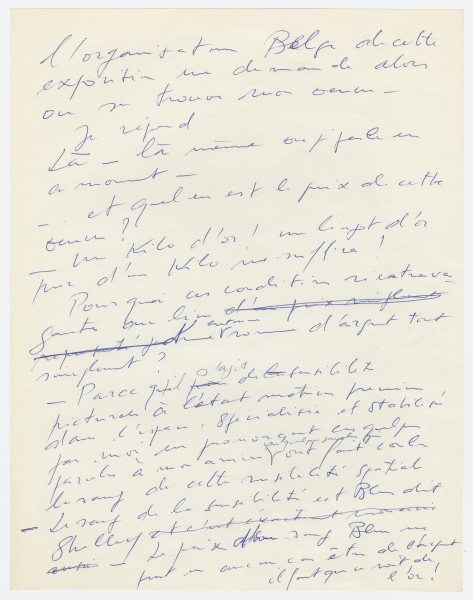 l'organisation Belge de cette
exposition me demande alors
où se trouve mon œuvre –
Je répond
Là – là même où je parle en
ce moment –
– et quel en est le prix de cette
œuvre ?
– Un Kilo d'or ! un lingot d'or
pur d'un Kilo me suffira !
Pourquoi ces conditions extrava-
gantes au lieu d'un prix
somme d'argent tout
simplement ?
– Parce qu'il s'agit de la sensibilité
picturale à l'état matière première
dans l'espace, spécialisée et stabilisée
par moi en prononçant ces quelques
paroles à mon arrivée qui ont fait couler
le sang de cette sensibilité spatiale
– Le sang de la sensibilité est Bleu dit
Shelley
– Le prix du sang Bleu ne
peut en aucun cas être de l'argent
il faut que ce soit de
l'or !